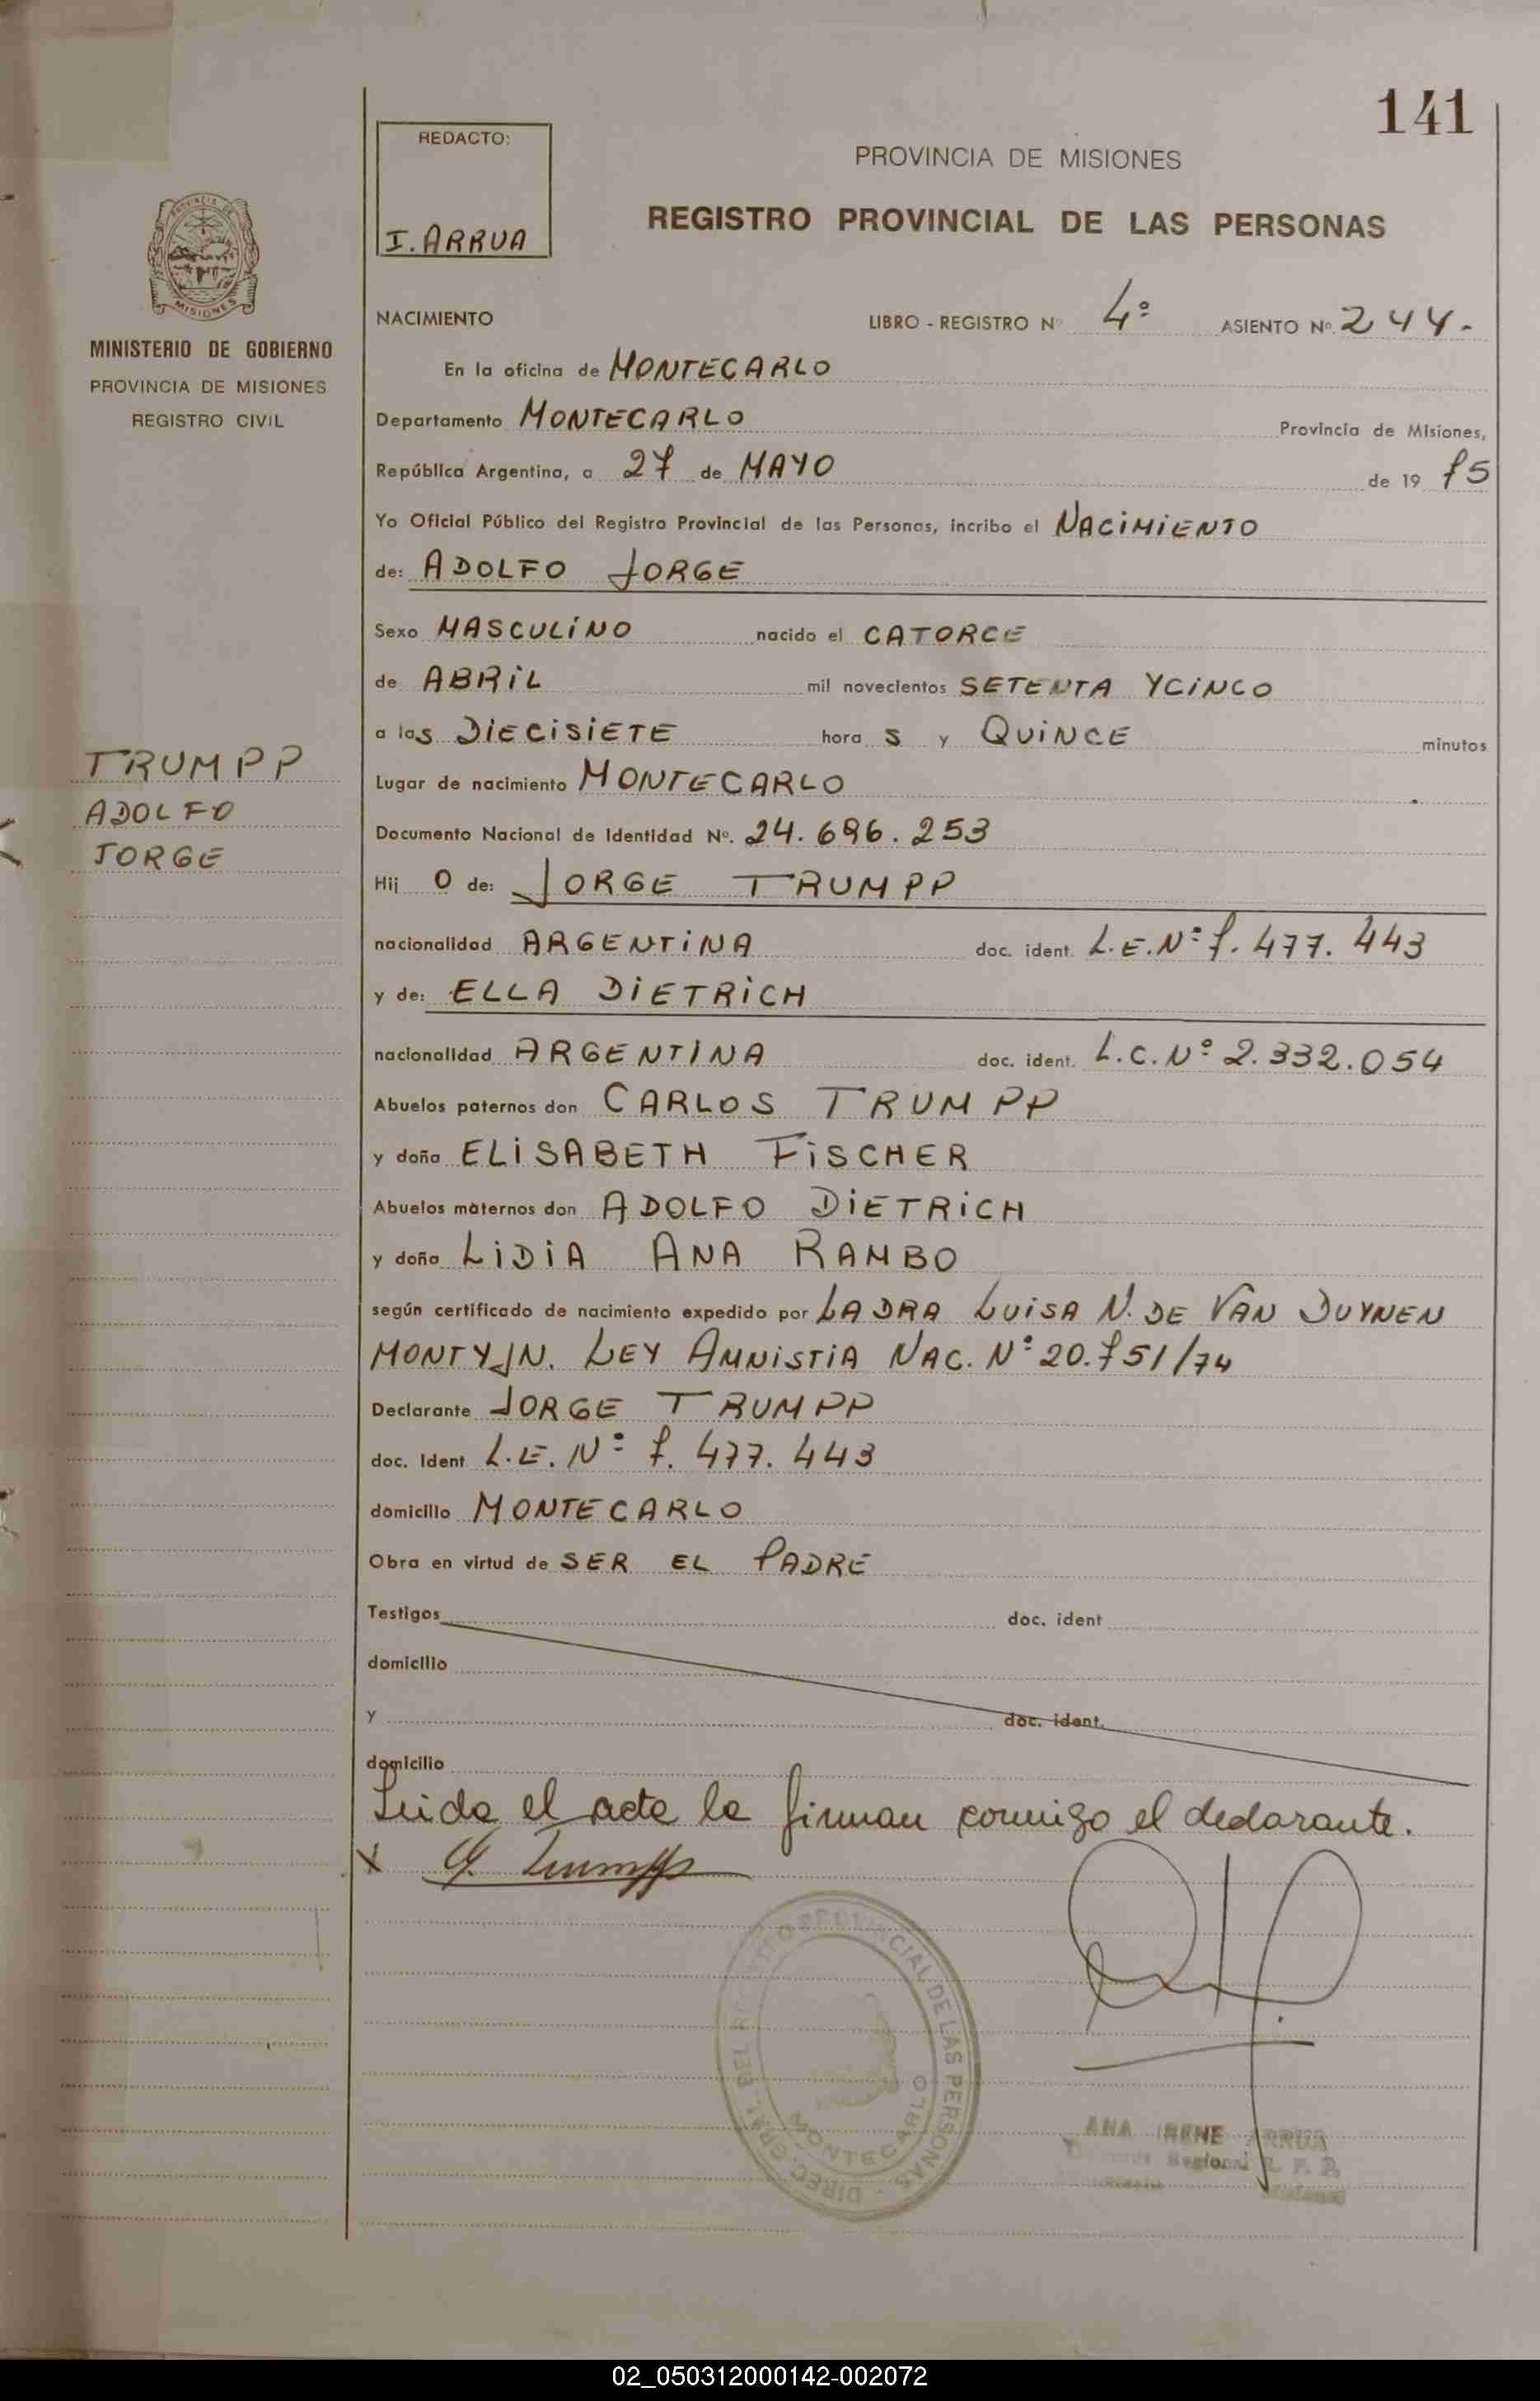 141
REDACTO:
I. ARRUA
PROVINCIA DE MISIONES
REGISTRO PROVINCIAL DE LAS PERSONAS
PROVINCIA DE
MISIONES
MINISTERIO DE GOBIERNO
PROVINCIA DE MISIONES
REGISTRO CIVIL
NACIMIENTO LIBRO - REGISTRO Nº 4º ASIENTO Nº. 244.-
En la oficina de MONTECARLO
Departamento MONTECARLO Provincia de Misiones,
República Argentina, a 27 de MAYO de 19 75
Yo Oficial Público del Registro Provincial de las Personas, incribo el NACIMIENTO
de: ADOLFO JORGE
Sexo MASCULINO nacido el CATORCE
de ABRIL mil novecientos SETENTA Y CINCO
a las DIECISIETE hora s y QUINCE minutos
TRUMPP
ADOLFO
JORGE
Lugar de nacimiento MONTECARLO
Documento Nacional de Identidad Nº. 24.696.253
Hij O de: JORGE TRUMPP
nacionalidad ARGENTINA doc. ident. L.E.Nº 7.477.443
y de: ELLA DIETRICH
nacionalidad ARGENTINA doc. ident. L.C.Nº 2.332.054
Abuelos paternos don CARLOS TRUMPP
y doña ELISABETH FISCHER
Abuelos maternos don ADOLFO DIETRICH
y doña LIDIA ANA RAMBO
según certificado de nacimiento expedido por LA DRA LUISA N. DE VAN DUYNEN
MONTYJN. LEY AMNISTIA NAC. Nº 20.751/74
Declarante JORGE TRUMPP
doc. Ident L.E. Nº 7.477.443
domicilio MONTECARLO
Obra en virtud de SER EL PADRE
Testigos doc. ident
domicilio
y doc. ident.
domicilio
Leida el acta la firman conmigo el declarante.
X J. Trumpp
DIREC. GRAL. DEL REGISTRO PROVINCIAL DE LAS PERSONAS
MONTECARLO
ANA IRENE ARRUA
Regional R. P. P.
02_050312000142-002072